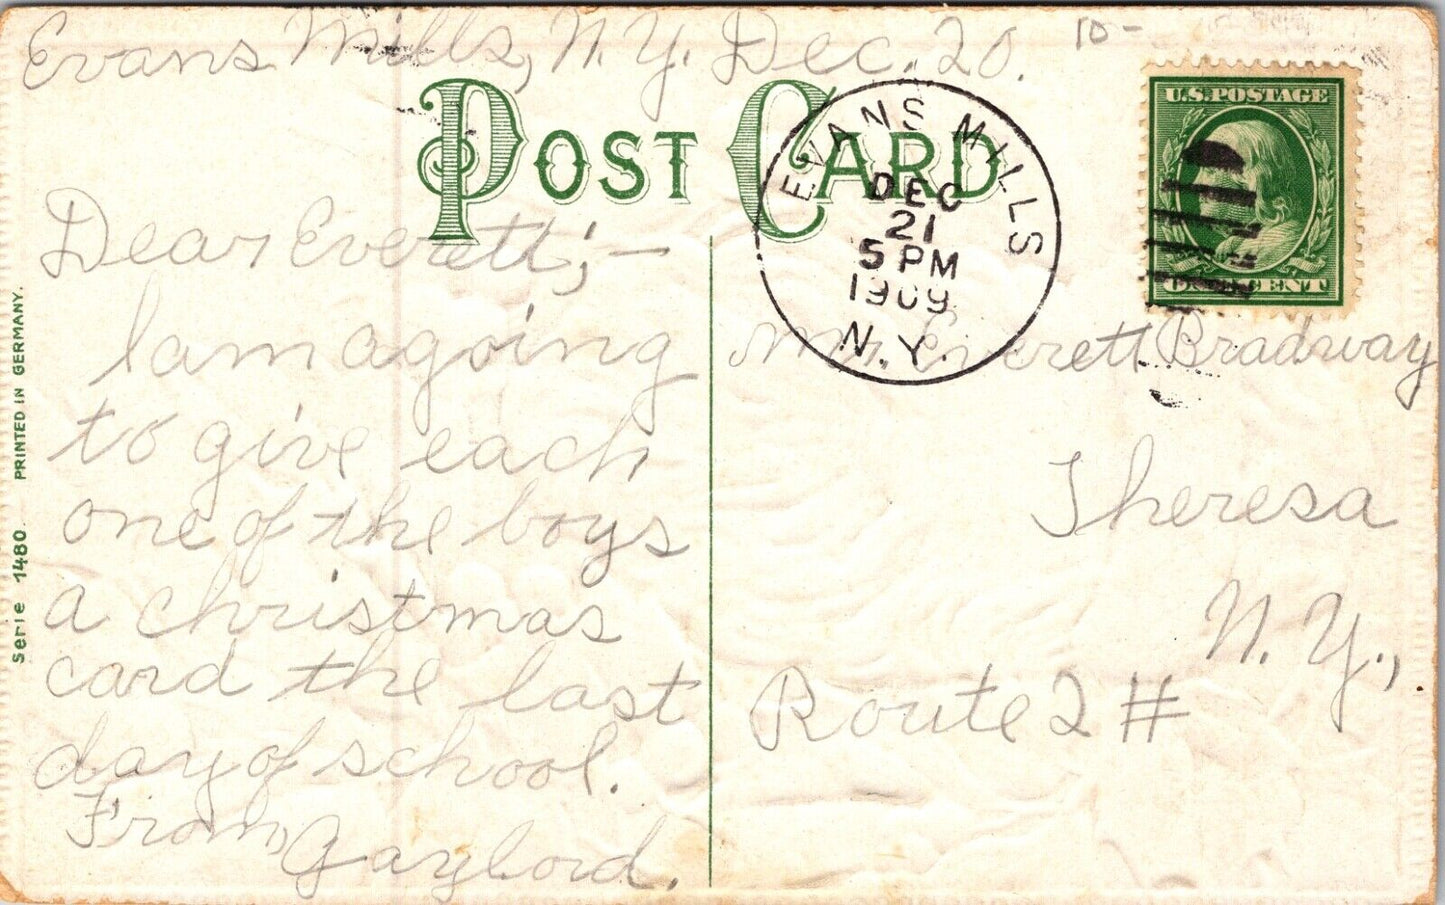 Evans Mills, N.Y. Dec. 20.
10-
POST CARD
U.S.POSTAGE
CENT
EVANS MILLS
DEC
21
5 PM
1909
N.Y.
Dear Everett;—
I am a going
to give each
one of the boys
a christmas
card the last
day of school.
From, Gaylord.
Mr. Everett Bradway
Theresa
N. Y.,
Route 2 #
Serie 1480. PRINTED IN GERMANY.